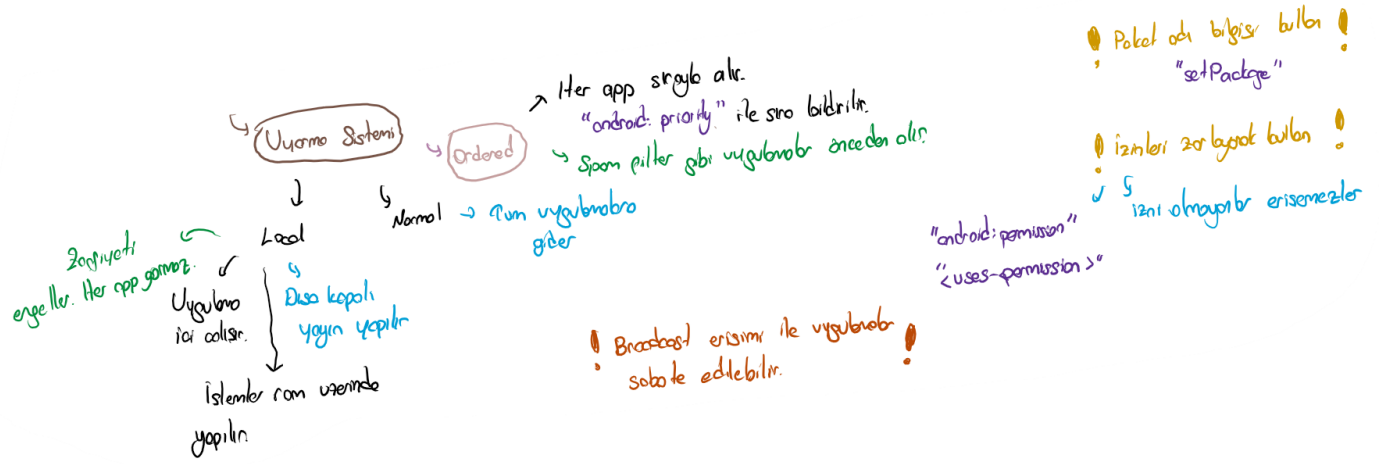 Uyarma Sistemi
Ordered
Her app sırayla alır.
"android: priority" ile sıra bildirilir.
Spam filter gibi uygulamalar önceden alır.
Normal
Tüm uygulamalara
gider
Local
Zafiyeti
engeller. Her app görmez.
Uygulama
içi çalışır.
Dışa kapalı
yayın yapılır
İşlemler ram üzerinde
yapılır.
! Broadcast erişimi ile uygulamalar !
sabote edilebilir.
! Paket adı bilgisi kullan !
"setPackage"
! İzinleri zorlayarak kullan !
izni olmayanlar erişemezler
"android:permission"
"<uses-permission>"